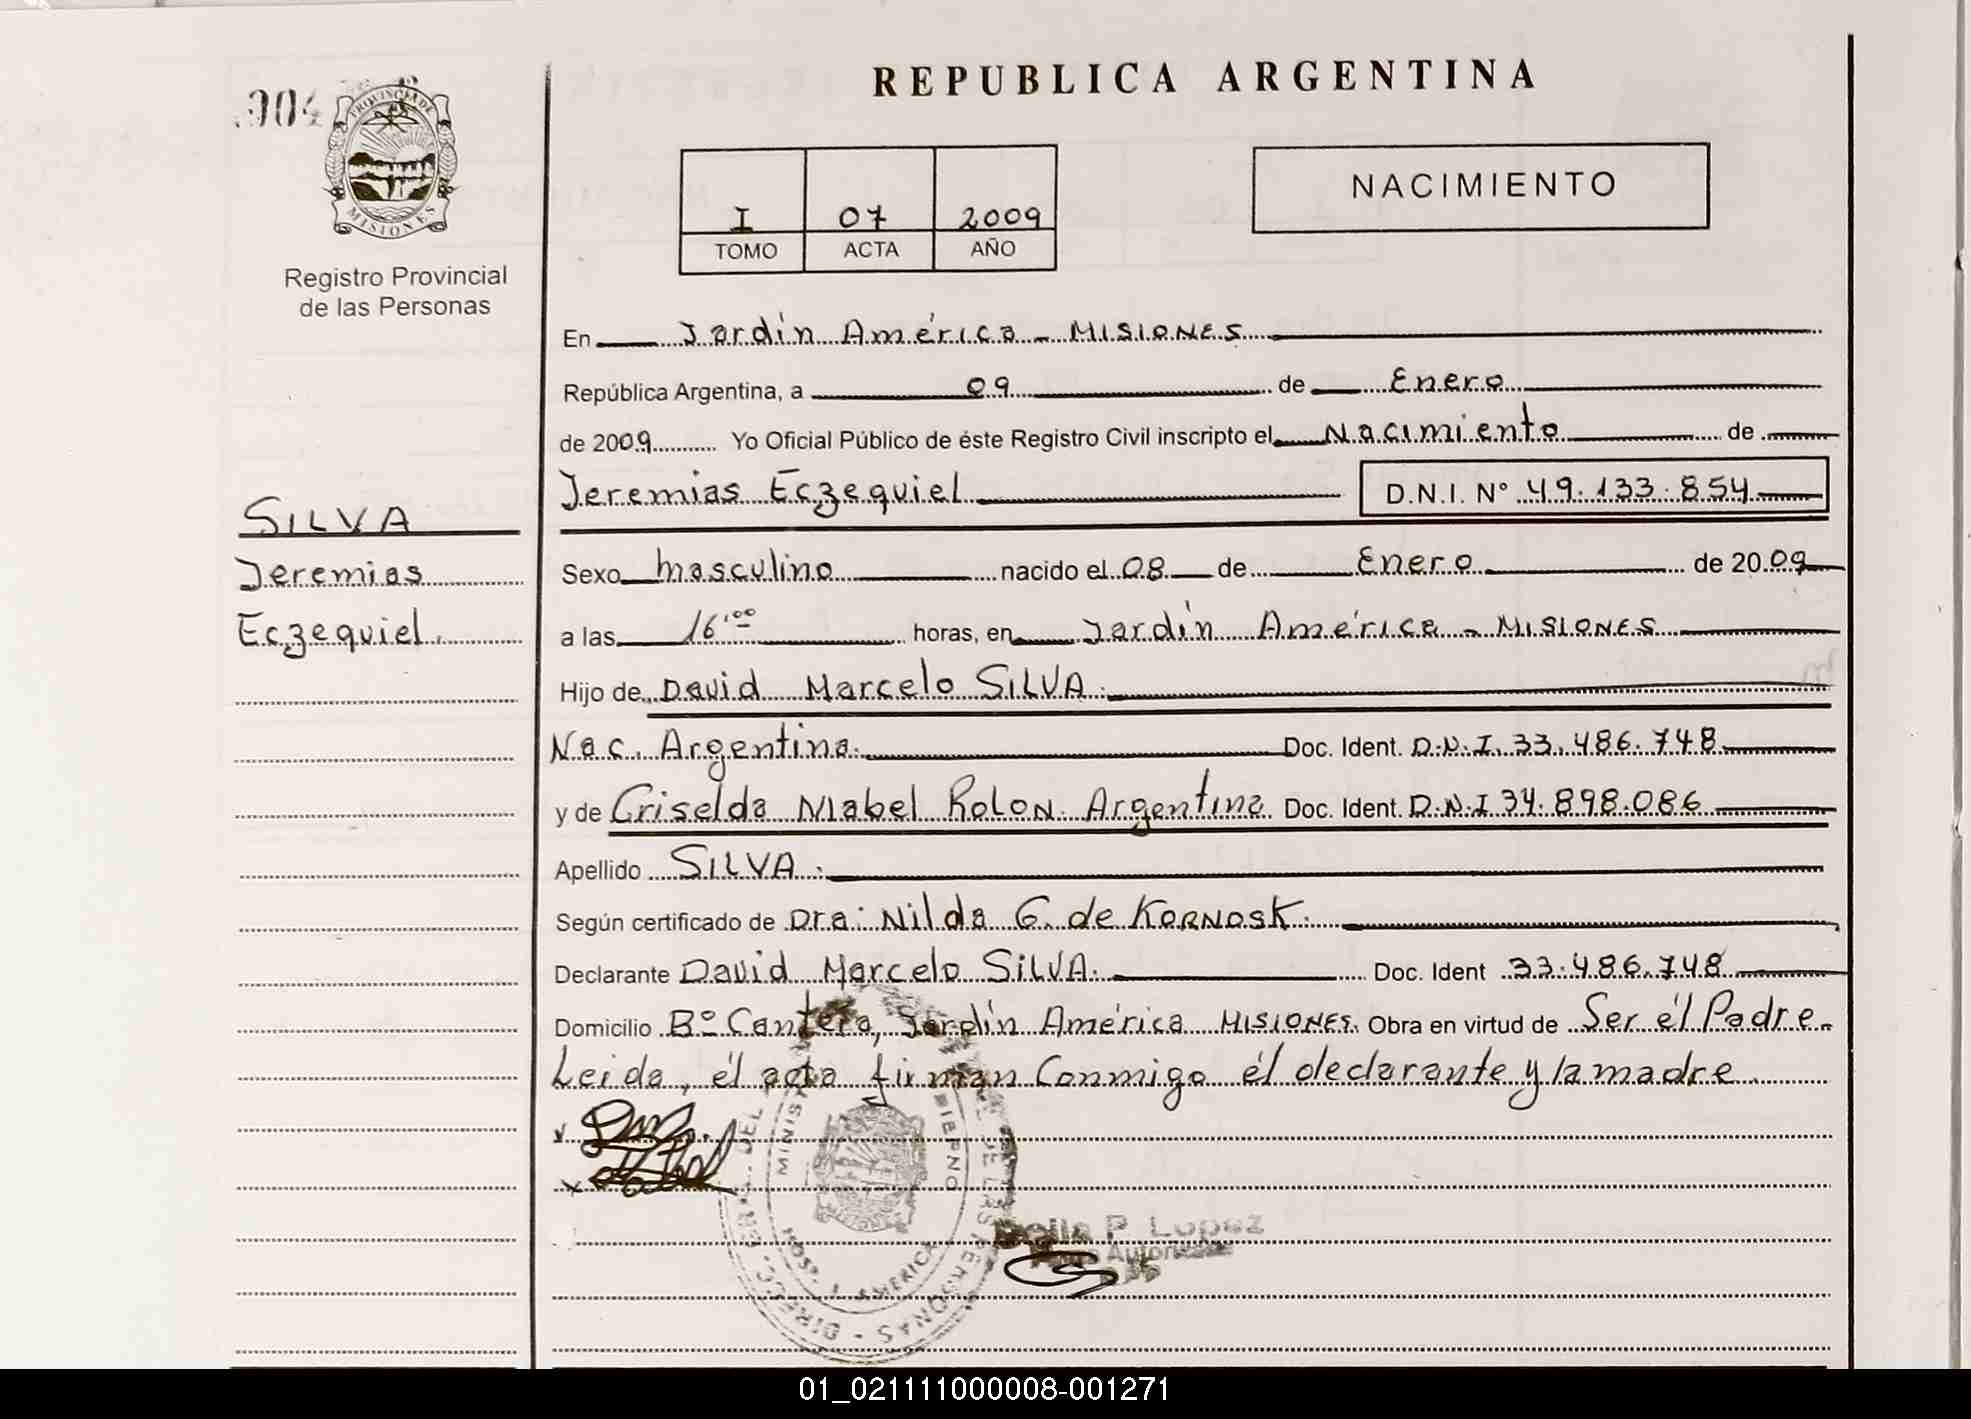 REPUBLICA ARGENTINA
PROVINCIA DE
MISIONES
Registro Provincial
de las Personas
I 07 2009
TOMO ACTA AÑO
NACIMIENTO
En Jardín América - MISIONES
República Argentina, a 09 de Enero
de 2009 Yo Oficial Público de éste Registro Civil inscripto el Nacimiento de
Jeremias Eczequiel D.N.I. Nº 49.133.854
SILVA
Jeremias
Eczequiel.
Sexo masculino nacido el 08 de Enero de 2009
a las 16'00 horas, en Jardín América - MISIONES
Hijo de David Marcelo SILVA.
Nac. Argentina. Doc. Ident. D.N.I. 33.486.748
y de Griselda Mabel ROLON. Argentina Doc. Ident. D.N.I 34.898.086
Apellido SILVA.
Según certificado de Dra: Nilda G. de KORNOSK.
Declarante David Marcelo SILVA. Doc. Ident 33.486.748
Domicilio Bº Cantera, Jardín América MISIONES. Obra en virtud de Ser él Padre.
Leida, él acta firman Conmigo él declarante y la madre.
P. Lopez
01_021111000008-001271